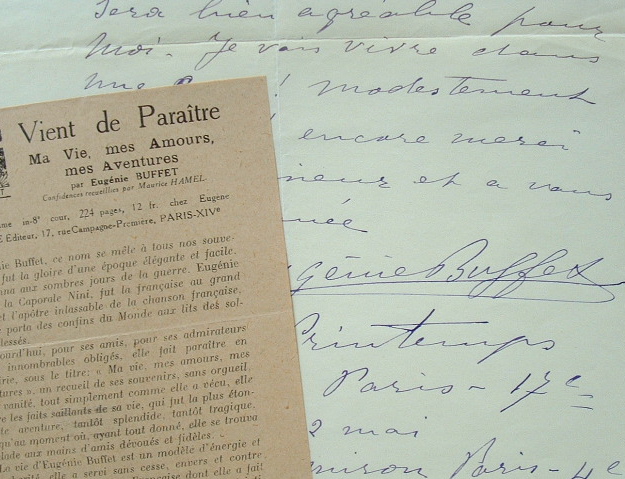 Sera bien agréable pour
Moi. Je vais vivre dans
une ! modestement
encore merci
sieur et a vous
née
génie Buffet
Printemps
Paris - 17e
2 mai
Paris - 4e
Vient de Paraître
Ma Vie, mes Amours,
mes Aventures
par Eugénie BUFFET
Confidences recueillies par Maurice HAMEL
me in-8° cour, 224 pages, 12 fr. chez Eugène
E Editeur, 17, rue Campagne-Première, PARIS-XIVe
nie Buffet, ce nom se mêle à tous nos souve-
fut la gloire d'une époque élégante et facile.
nna aux sombres jours de la guerre. Eugénie
la Caporale Nini, fut la française au grand
et l'apôtre inlassable de la chanson française,
e porta des confins du Monde aux lits des sol-
lessés.
ourd'hui, pour ses amis, pour ses admirateurs
innombrables obligés, elle fait paraître en
irie, sous le titre: « Ma vie, mes amours, mes
tures », un recueil de ses souvenirs, sans orgueil,
vanité, tout simplement comme elle a vécu, elle
re les faits saillants de sa vie, qui fut la plus éton-
te aventure, tantôt splendide, tantôt tragique,
qu'au moment où, ayant tout donné, elle se trouva
lade aux mains d'amis dévoués et fidèles.
La vie d'Eugénie Buffet est un modèle d'énergie et
charité, elle a servi sans cesse, envers et contre
Française dont elle a fait